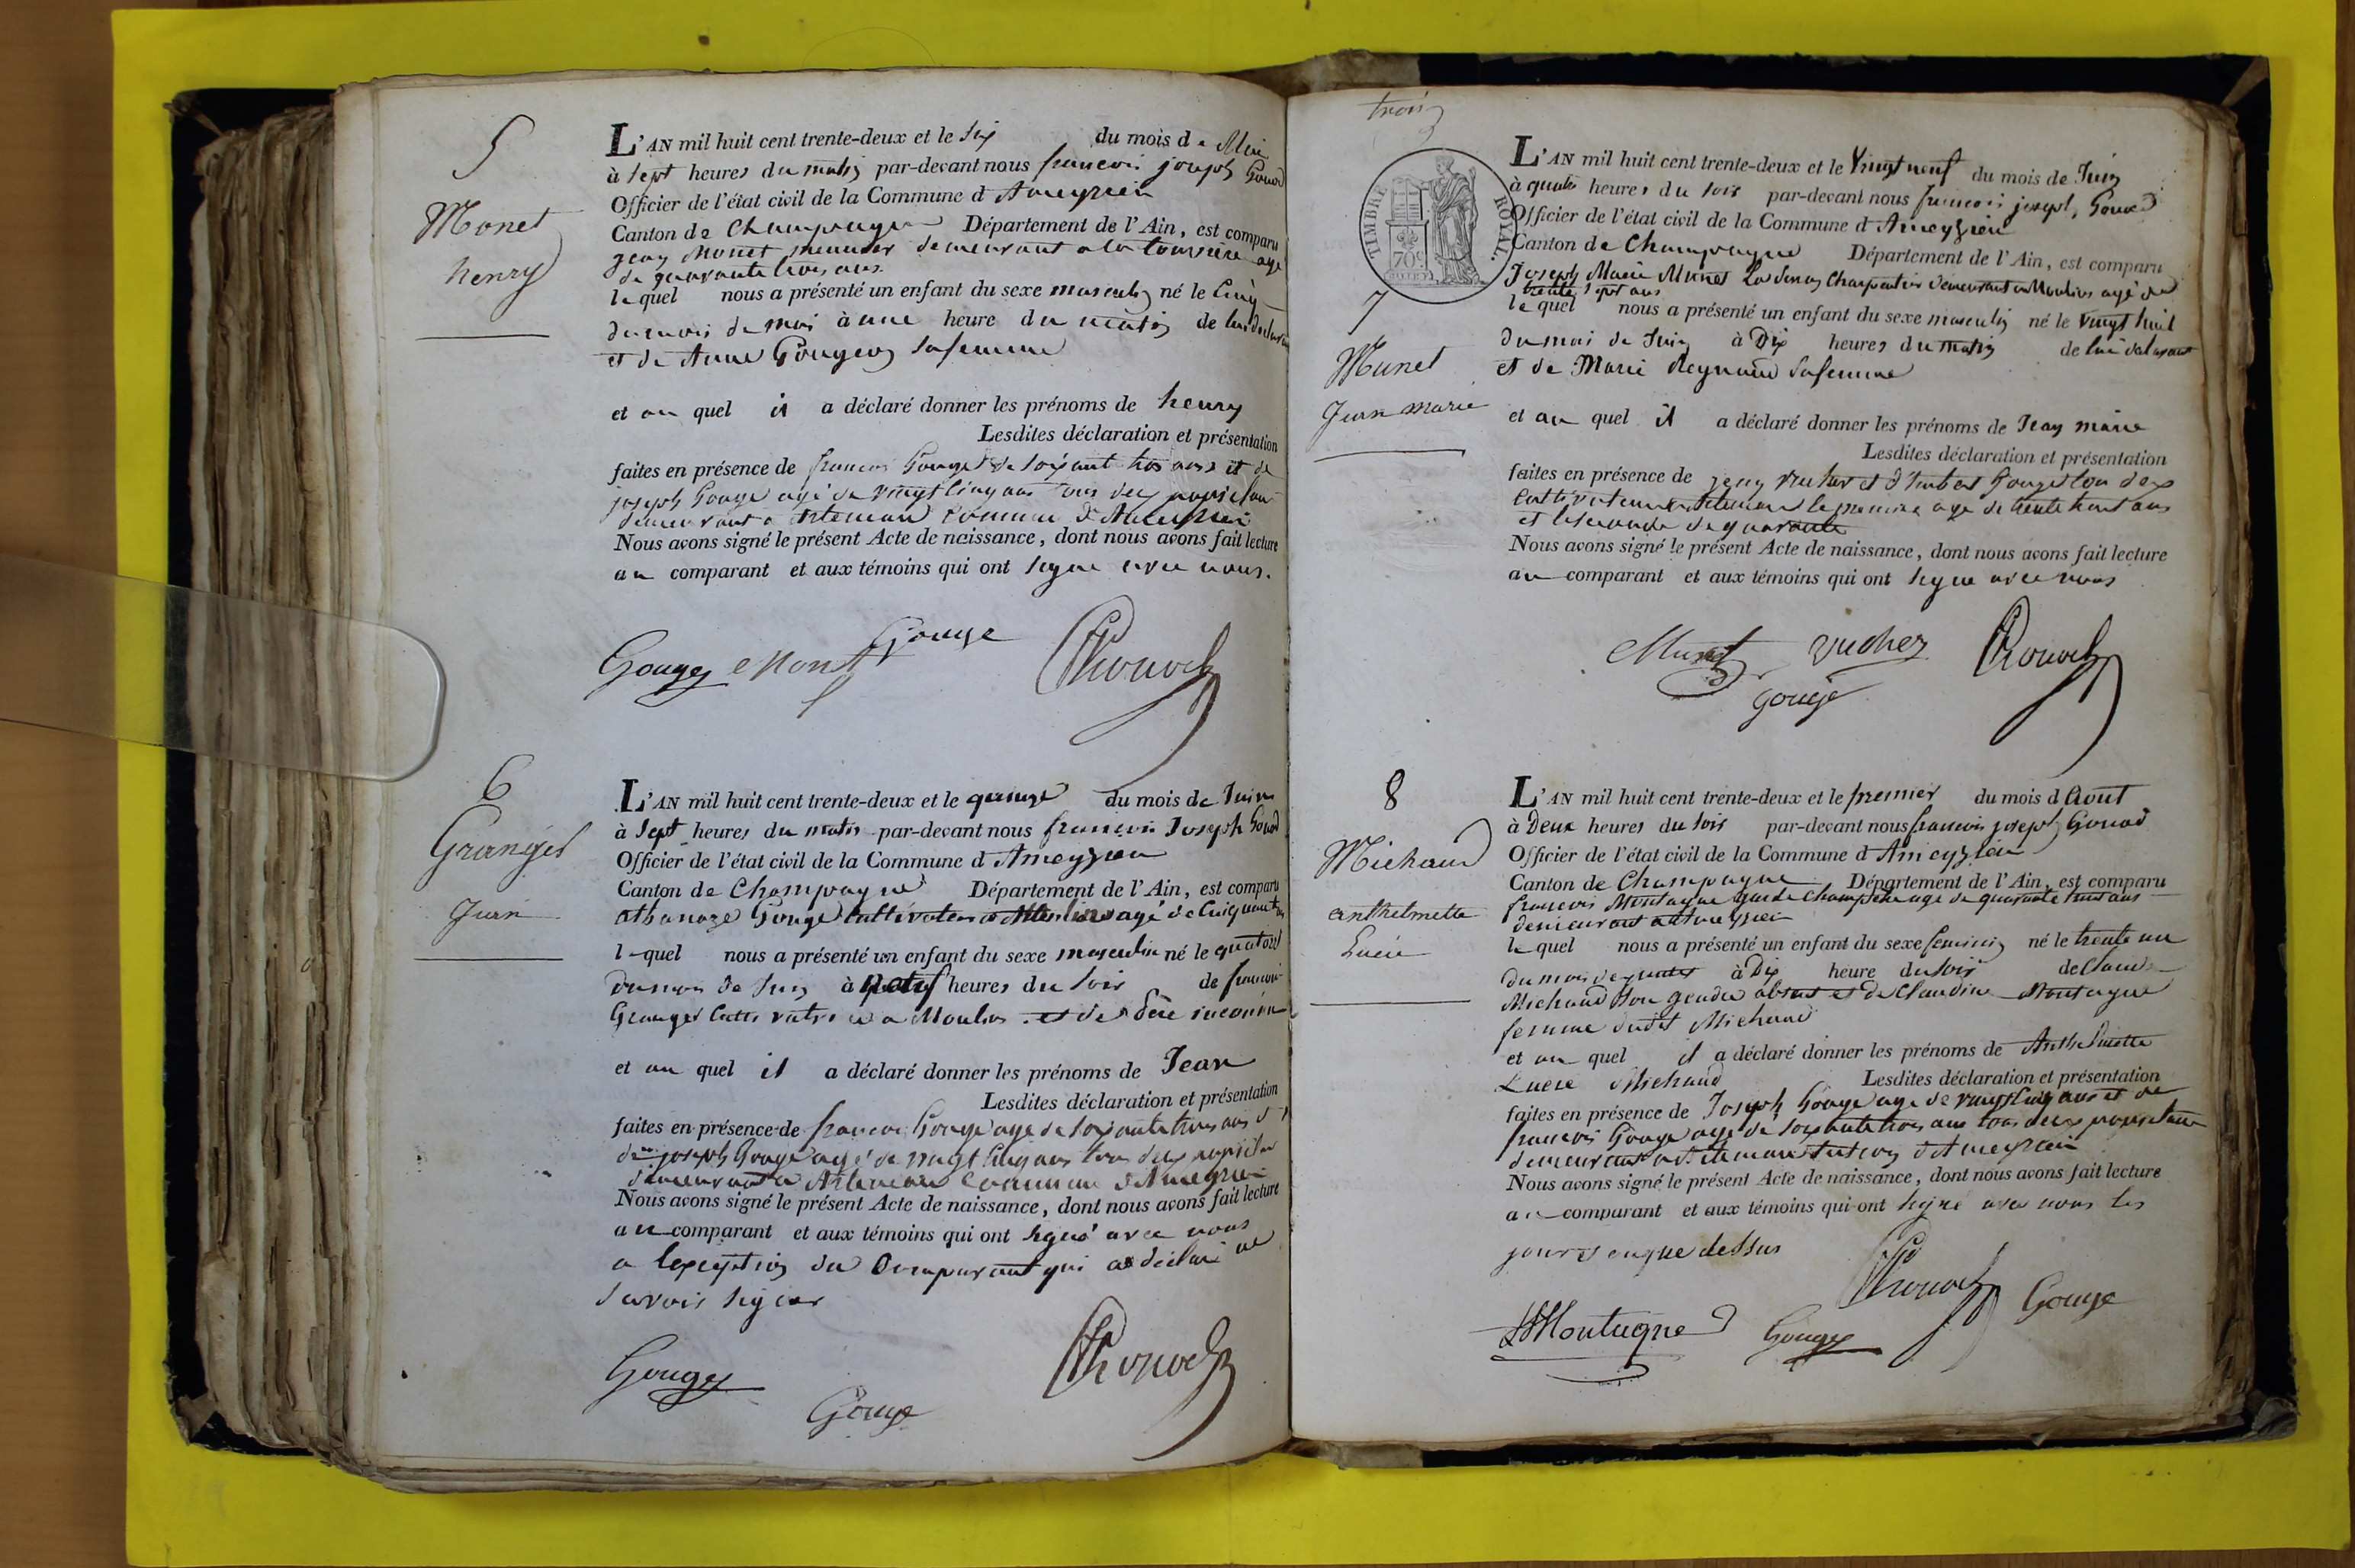 5
Monet
henry
L'AN mil huit cent trente-deux et le six du mois de Mai
à sept heures du matin par-devant nous francois joseph Gonod
Officier de l'état civil de la Commune d Ameyzieu
Canton de Champagne Département de l'Ain, est comparu
jean Monet meunier demeurant a la age
de quarante trois ans
lequel nous a présenté un enfant du sexe masculin né le Cinq
du mois de mai à une heure du matin de lui declarant
et de Anne Gougeon sa femme
et au quel il a déclaré donner les prénoms de henry
Lesdites déclaration et présentation
faites en présence de francois Gouge de soixante trois ans et de
joseph Gouge agé de vingt cinq ans tous deux
demeurant a Artemare commune d'Ameyzieu
Nous avons signé le présent Acte de naissance, dont nous avons fait lecture
au comparant et aux témoins qui ont signe avec nous.
Gouge Monet Gouge Gonod
6
Granger
Jean
L'AN mil huit cent trente-deux et le quinze du mois de Juin
à sept heures du matin par-devant nous francois Joseph Gonod
Officier de l'état civil de la Commune d Ameyzieu
Canton de Champagne Département de l'Ain, est comparu
athanaze Gouge Cultivateur a agé de Cinquante
lequel nous a présenté un enfant du sexe masculin né le quatorze
du mois de Juin à heures du soir de
Granger a Moulin et de Père inconnu
et au quel il a déclaré donner les prénoms de Jean
Lesdites déclaration et présentation
faites en présence de francois Gouge age de soixante trois ans
de joseph Gouge agé de vingt Cinq ans tous deux
demeurant a Artemare Commune d'Ameyzieu
Nous avons signé le présent Acte de naissance, dont nous avons fait lecture
au comparant et aux témoins qui ont signé avec nous
a lexception du Comparant qui a déclaré ne
savoir signer
Gouge Gouge Gonod
trois
TIMBRE ROYAL.
70c
7
Munet
Jean marie
L'AN mil huit cent trente-deux et le Vingt neuf du mois de Juin
à quatre heures du soir par-devant nous francois joseph Gonod
Officier de l'état civil de la Commune d Ameyzieu
Canton de Champagne Département de l'Ain, est comparu
Joseph Marie Munet Charpentier demeurant a Moulin agé de
trente sept ans
lequel nous a présenté un enfant du sexe masculin né le vingt huit
du mois de Juin à Dix heures du matin de lui declarant
et de Marie Reynaud sa femme
et au quel il a déclaré donner les prénoms de Jean marie
Lesdites déclaration et présentation
faites en présence de jean Vucher et d'Imbert Gouge tou deux
Cultivateurs a Artemare le premier age de trente huit ans
et le second de quarante
Nous avons signé le présent Acte de naissance, dont nous avons fait lecture
au comparant et aux témoins qui ont signe avec nous
Munet Vucher Gonod
Gouge
8
Michaud
anthelmette
Lucie
L'AN mil huit cent trente-deux et le premier du mois d Aout
à Deux heures du soir par-devant nous francois joseph Gonod
Officier de l'état civil de la Commune d Ameyzieu
Canton de Champagne Département de l'Ain, est comparu
francois Montagne garde Champetre age de quarante huit ans
demeurant a Ameyzieu
lequel nous a présenté un enfant du sexe feminin né le trente un
du mois de juillet à Dix heure du soir de Claude
Michaud son gendre absent et de Claudine Montagne
femme dudit Michaud
et au quel il a déclaré donner les prénoms de Anthelmette
Lucie Michaud Lesdites déclaration et présentation
faites en présence de Joseph Gouge age de vingt Cinq ans et de
francois Gouge age de soixante trois ans tous deux
demeurant a Artemare d'Ameyzieu
Nous avons signé le présent Acte de naissance, dont nous avons fait lecture
au comparant et aux témoins qui ont signé avec nous les
jour et en que dessus
Montagne Gouge Gonod Gouge